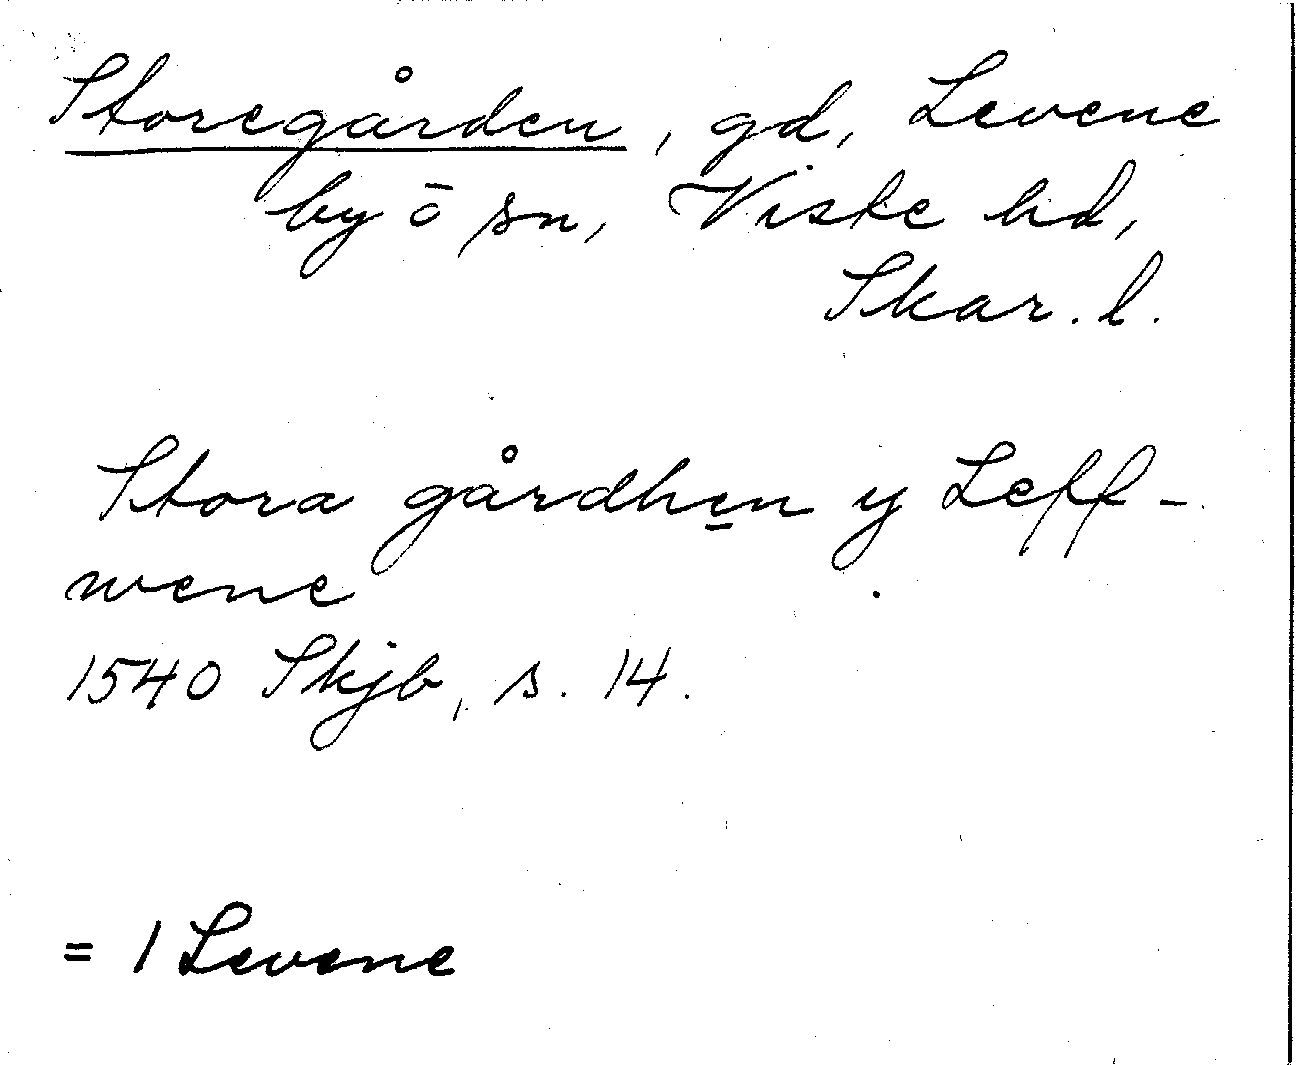 Storegården, gd, Levene
by ō sn, Viste hd,
Skar. l.
Stora gårdhen y Leff-
wene
1540 Skjb, s. 14.
= 1 Levene